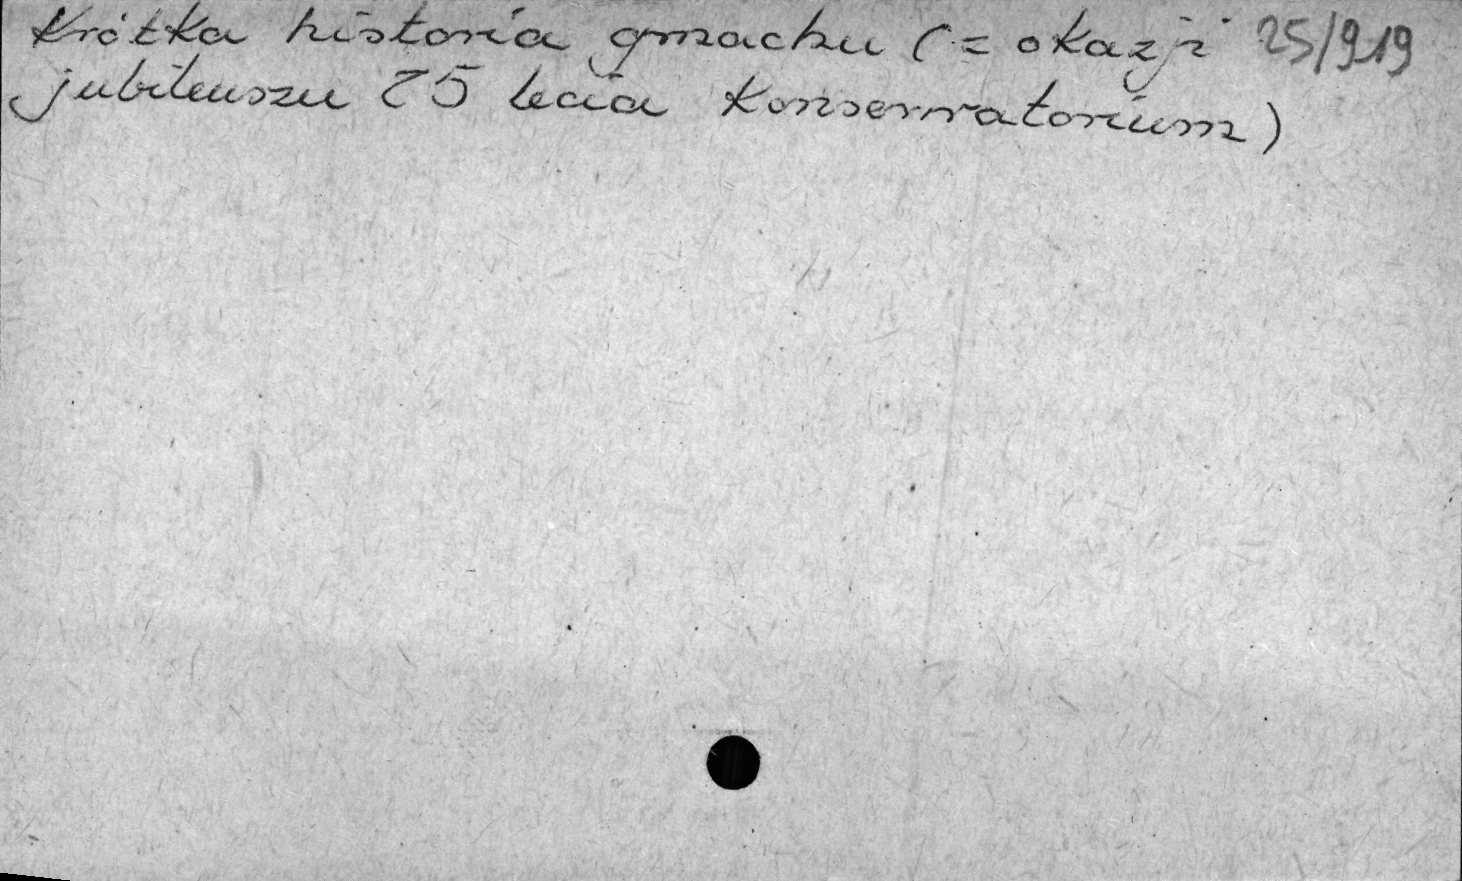 Krótka historia gmachu (z okazji 25/919
jubileuszu 75 lecia Konserwatorium)